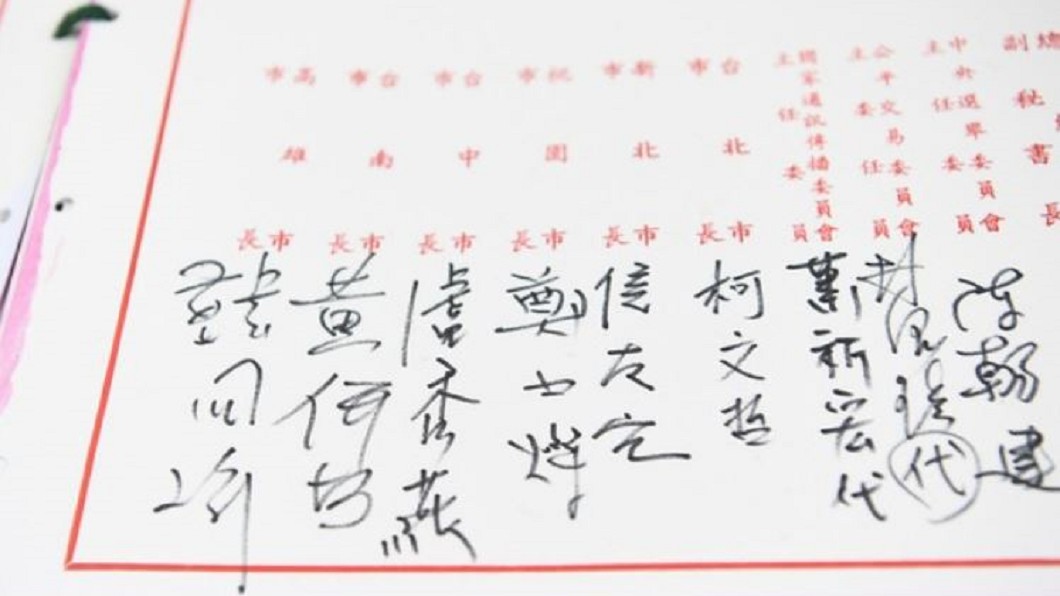 總
副秘書長
中央選舉委員會
主任委員
陳朝建
公平交易委員會
主任委員
代
國家通訊傳播委員會
主任委員
蕭祈宏代
台北市
市長
柯文哲
新北市
市長
侯友宜
桃園市
市長
鄭文燦
台中市
市長
盧秀燕
台南市
市長
黃偉哲
高雄市
市長
韓國瑜